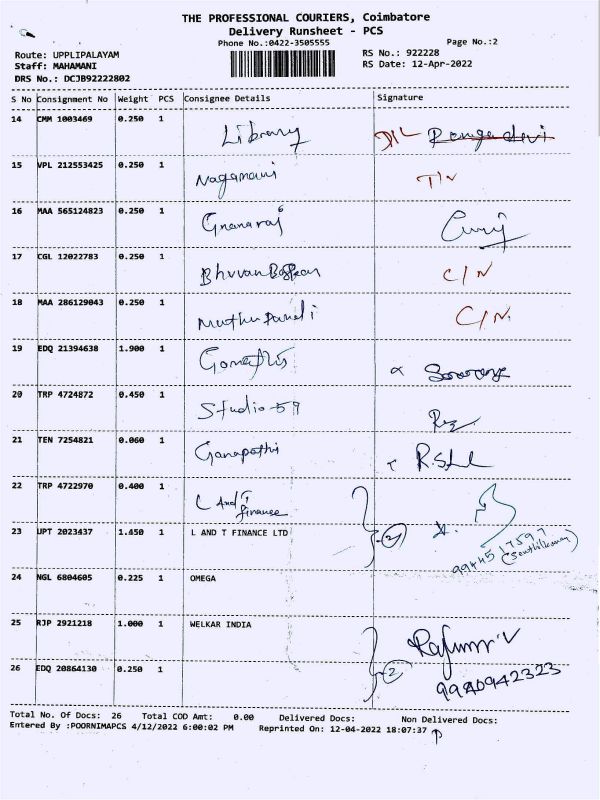 THE PROFESSIONAL COURIERS, Coimbatore
Delivery Runsheet - PCS
Phone No.:0422-3505555 Page No.:2
Route: UPPLIPALAYAM RS No.: 922228
Staff: MAHAMANI RS Date: 12-Apr-2022
DRS No.: DCJB92222802
S No Consignment No Weight PCS Consignee Details Signature
14 CMM 1003469 0.250 1 Library D/L Rengadevi
15 VPL 212553425 0.250 1 Nagamani T/N
16 MAA 565124823 0.250 1 Gnanaraj
17 CGL 12022783 0.250 1 C/N
18 MAA 286129043 0.250 1 Muthu Pandi C/N.
19 EDQ 21394638 1.900 1
20 TRP 4724872 0.450 1 Studio-59
21 TEN 7254821 0.060 1 Ganapathi
22 TRP 4722970 0.400 1 L And T finance
23 UPT 2023437 1.450 1 L AND T FINANCE LTD 2
9944517597
(Senthilkumar)
24 NGL 6804605 0.225 1 OMEGA
25 RJP 2921218 1.000 1 WELKAR INDIA Rajkumar V
26 EDQ 20864130 0.250 1 2 9940942323
Total No. Of Docs: 26 Total COD Amt: 0.00 Delivered Docs: Non Delivered Docs:
Entered By :POORNIMAPCS 4/12/2022 6:00:02 PM Reprinted On: 12-04-2022 18:07:37